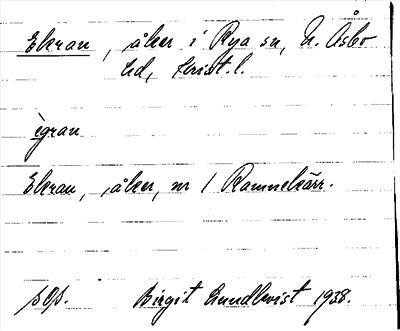 Ekran, åker i Rya sn, N. Åsbo
hd, Krist. l.
ègran
Ekran, åker, nr 1 Ramnekärr.
Birgit Lundkvist 1938.